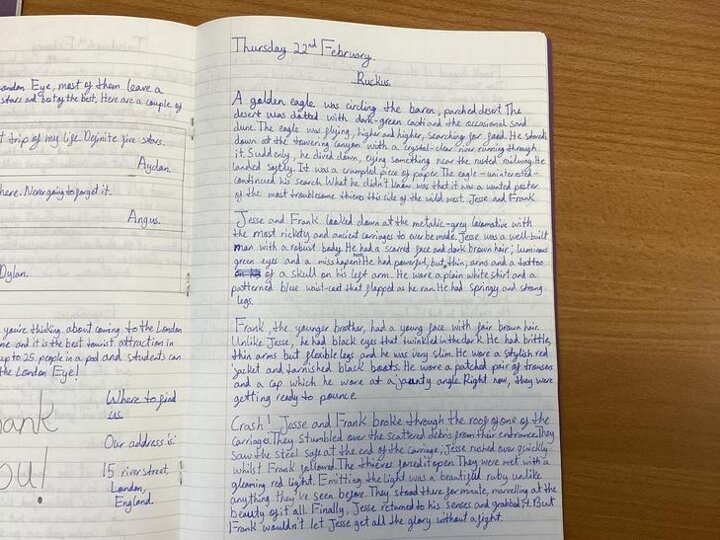 London Eye, most of them leave a
stars and best of the best. Here are a couple of
trip of my life. Definite five stars.
Aydan.
here. Never going to forget it.
Angus.
Dylan.
you're thinking about coming to the London
me and it is the best tourist attraction in
up to 25 people in a pod and students can
the London Eye!
ank
ou!
Where to find
us.
Our address is:
15 river street,
London,
England.
Thursday 22nd February.
Ruckus.
A golden eagle was circling the baren, parched desert. The
desert was dotted with dark-green cacti and the occasional sand
dune. The eagle was flying, higher and higher, searching for food. He stared
down at the towering canyon with a crystal-clear river running through
it. Suddenly, he dived down, eying something near the rusted railway. He
landed softly. It was a crumpled piece of paper. The eagle -uninterested-
continued his search. What he didn't know was that it was a wanted poster
of the most troublesome thieves this side of the wild west. Jesse and Frank.
Jesse and Frank looked down at the metalic-grey locomotive with
the most rickety and ancient carriages to ever be made. Jesse was a well-built
man with a robust body. He had a scarred face and dark brown hair; luminous
green eyes and a misshapen. He had powerful, but, thin, arms and a tattoo
of a skull on his left arm. He wore a plain white shirt and a
patterned blue waist-coat that flapped as he ran. He had springy and strong
legs.
Frank, the younger brother, had a young face with fair brown hair.
Unlike Jesse, he had black eyes that twinkled in the dark. He had brittle,
thin arms but flexible legs and he was very slim. He wore a stylish red
jacket and tarnished black boots. He wore a patched pair of trousers
and a cap which he wore at a jaunty angle. Right now, they were
getting ready to pounce.
Crash! Jesse and Frank broke through the roof of one of the
carriages. They stumbled over the scattered debris from their entrance. They
saw the steel safe at the end of the carriage, Jesse rushed over quickly
whilst Frank followed. The thieves forced it open. They were met with a
gleaming red light. Emitting the light was a beautiful ruby unlike
anything they've seen before. They stood there for minute, marvelling at the
beauty of it all. Finally, Jesse returned to his senses and grabbed it. But
Frank wouldn't let Jesse get all the glory without a fight.